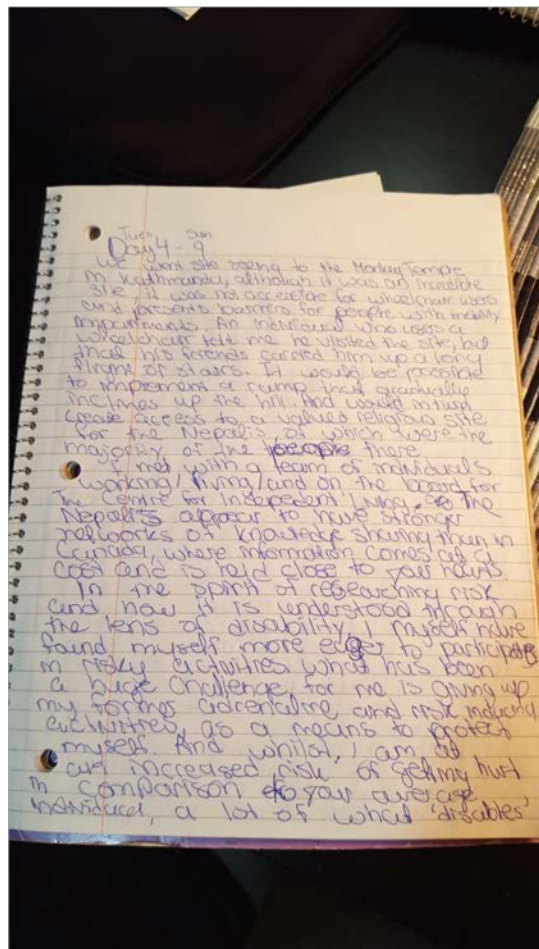 Tues Sun
Day 4 - 9
We went site seeing to the Monkey Temple
in Kathmandu, although it was an incredible
site it was not accessible for wheelchair users
and presents barriers for people with mobility
impairments. An individual who uses a
wheelchair told me he visited the site, but
that his friends carried him up a long
flight of stairs. It would be possible
to implement a ramp that gradually
inclines up the hill. And would in turn
create access to a valued religious site
for the Nepalis, of which were the
majority of the people there
I met with a team of individuals
working/living/and on the board for
The Centre for Independent Living. The
Nepalis appear to have stronger
networks of knowledge sharing than in
Canada, where information comes at a
cost and is held close to your
In the spirit of researching risk
and how it is understood through
the lens of disability, I myself have
found myself more eager to participate
in risky activities what has been
a huge challenge for me is giving up
my former adrenaline and risk inducing
activities as a means to protect
myself. And whilst, I am at
an increased risk of getting hurt
in comparison to your average
individual, a lot of what 'disables'